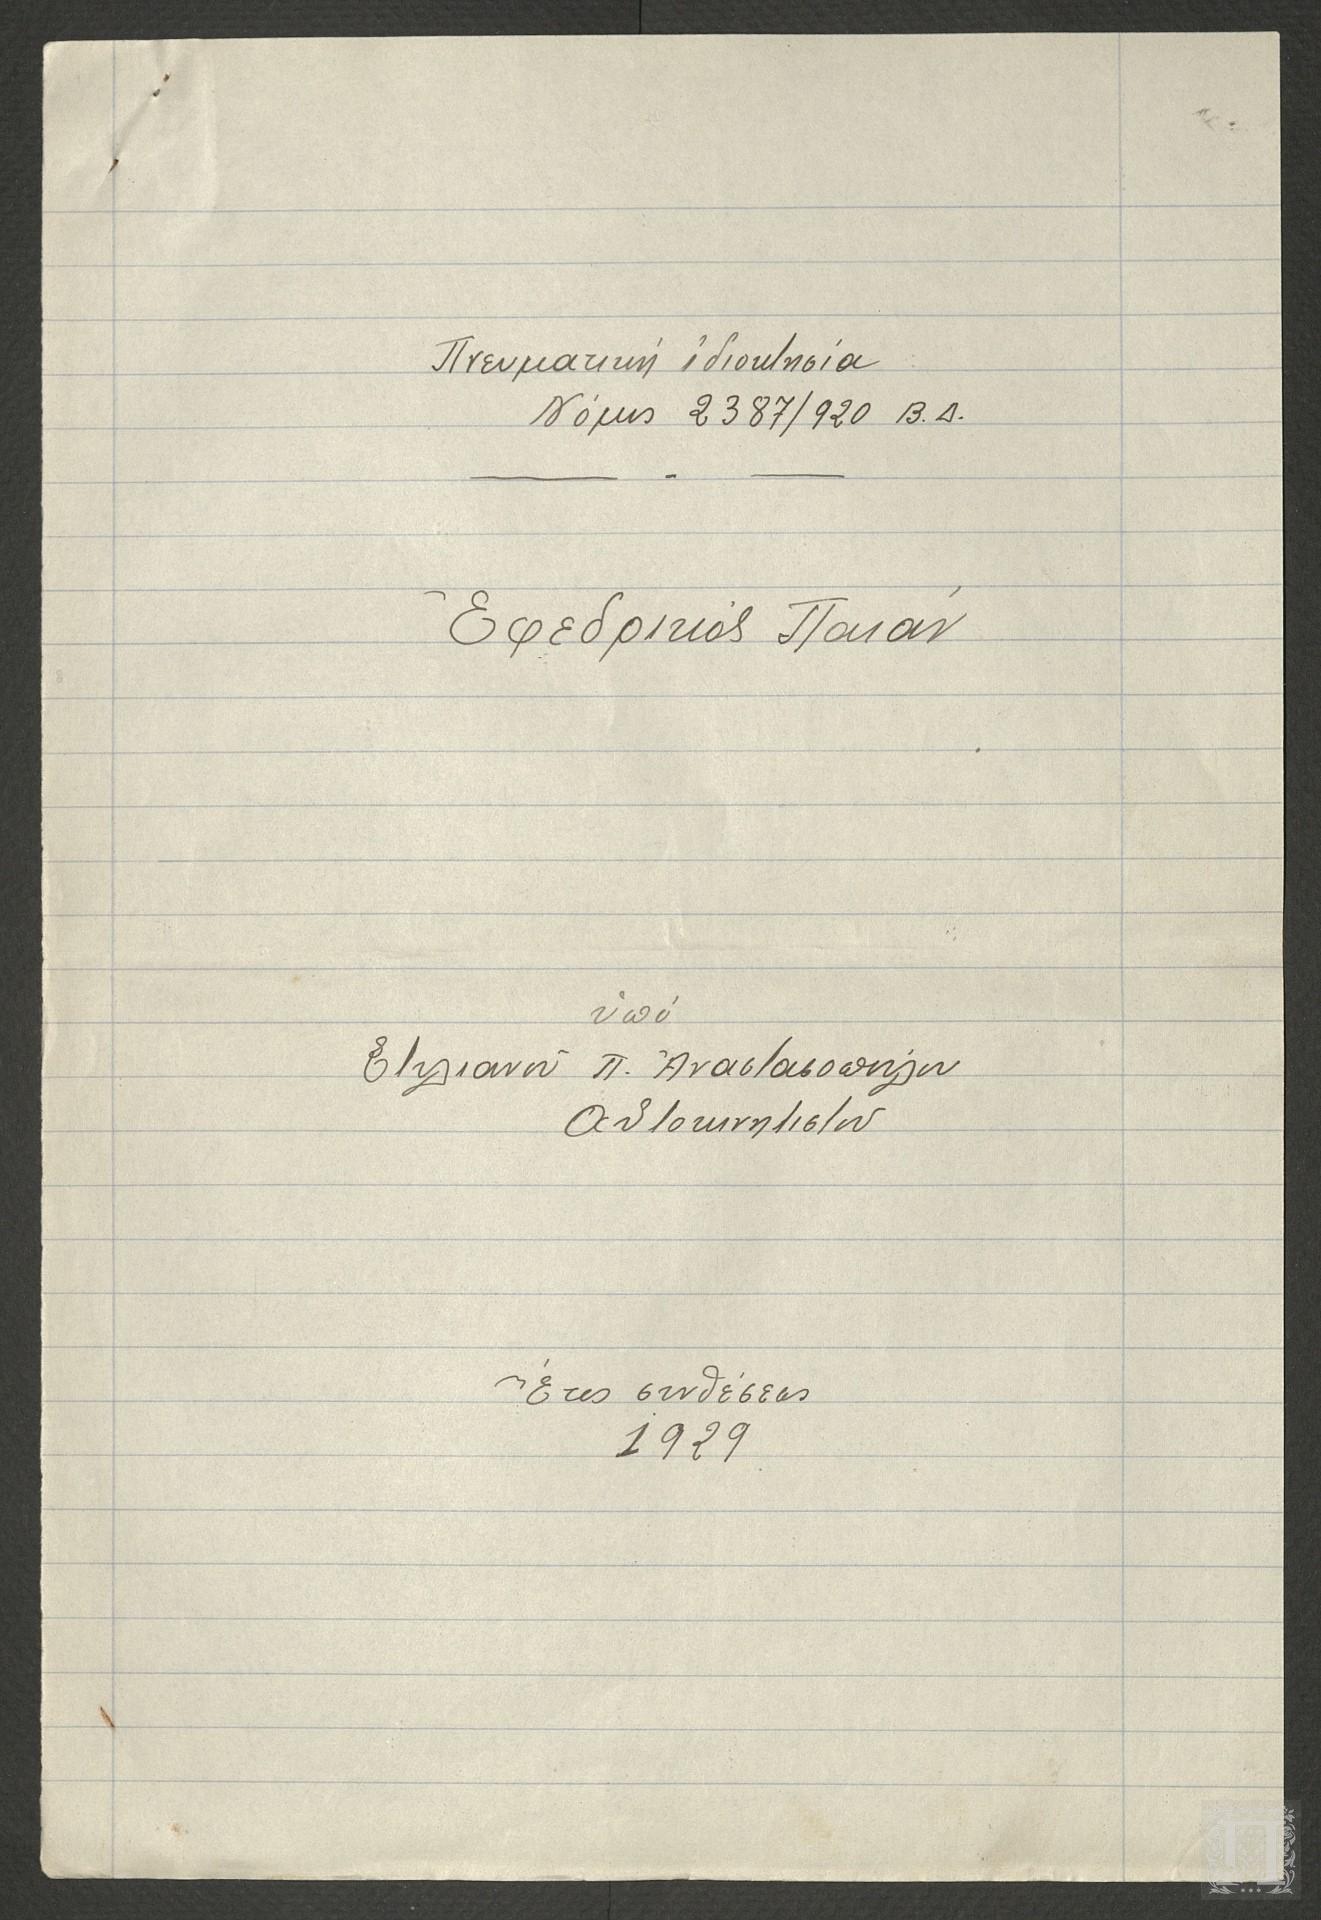 Πνευματική ἰδιοκτησία
Νόμος 2387/920 Β.Δ.
Ἐφεδρικός Παιάν
ὑπό
Στυλιανοῦ Π. Ἀναστασοπούλου
Αὐτοκινητιστοῦ
Ἔτος συνθέσεως
1929